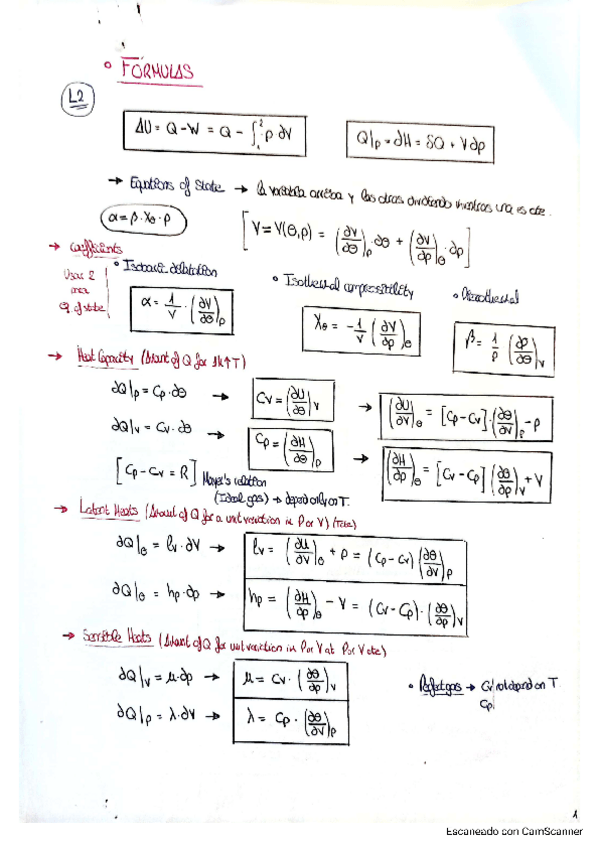 ° FÓRMULAS
L2
ΔU = Q - W = Q - ∫₁² p ∂V
Q|p = ∂H = δQ + V∂p
→ Equations of State → la variable arriba y las otras dividiendo mientras una es cte.
α = β · Xθ · p
[ V = V(θ,p) = (∂V/∂θ)p · ∂θ + (∂V/∂p)θ · ∂p ]
→ Coefficients
Usar 2
una
Q. of state
° Isobaric dilatation
° Isothermal compressibility
α = 1/V · (∂V/∂θ)p
Xθ = -1/V (∂V/∂p)θ
β = 1/p (∂p/∂θ)v
→ Heat Capacity (Amount of Q for 1k↑T)
∂Q|p = Cp · ∂θ →
Cv = (∂U/∂θ)v
→ (∂U/∂V)θ = [Cp - Cv] · (∂θ/∂V)p - p
∂Q|v = Cv · ∂θ →
Cp = (∂H/∂θ)p
→ (∂H/∂p)θ = [Cv - Cp] (∂θ/∂p)v + V
[ Cp - Cv = R ] Mayer's relation
(Ideal gas) → depend only on T.
→ Latent Heats (Amount of Q for a unit variation in P or V) (T cte)
∂Q|θ = lv · ∂V →
lv = (∂U/∂V)θ + p = (Cp - Cv) (∂θ/∂V)p
∂Q|θ = hp · ∂p →
hp = (∂H/∂p)θ - V = (Cv - Cp) · (∂θ/∂p)v
→ Sensible Heats (Amount of Q for unit variation in P or V at P or V cte)
∂Q|v = μ · ∂p →
μ = Cv · (∂θ/∂p)v
° Perfect gas → Cv not depend on T.
Cp
∂Q|p = λ · ∂V →
λ = Cp · (∂θ/∂V)p
1
Escaneado con CamScanner